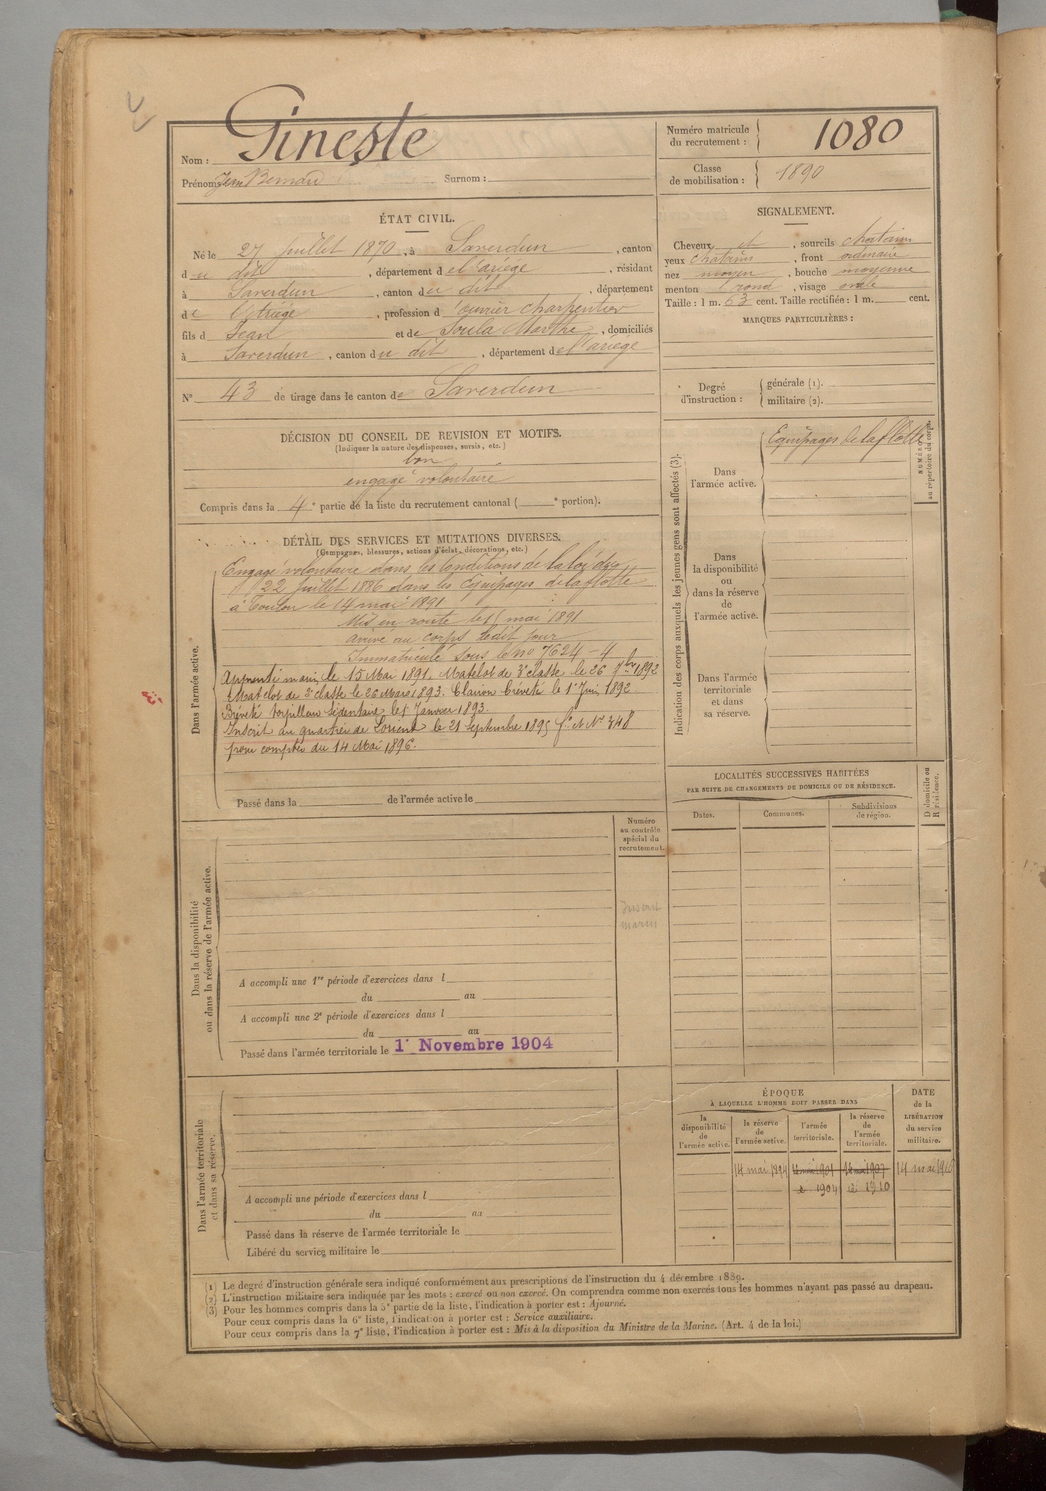 Nom : Gineste
Prénoms Jean Bernard Surnom :
Numéro matricule du recrutement : 1080
Classe de mobilisation : 1890
ÉTAT CIVIL.
Né le 27 Juillet 1870, à Saverdun, canton
du dit, département de l'ariège, résidant
à Saverdun, canton du dit, département
de l'Ariège, profession d'ouvrier charpentier
fils de Jean et de Soula Marthe, domiciliés
à Saverdun, canton du dit, département de l'ariège
N° 43 de tirage dans le canton de Saverdun
SIGNALEMENT.
Cheveux et, sourcils chatains
yeux chatains, front ordinaire
nez moyen, bouche moyenne
menton rond, visage ovale
Taille : 1 m. 63 cent. Taille rectifiée : 1 m. cent.
MARQUES PARTICULIÈRES :
Degré d'instruction : générale (1).
militaire (2).
DÉCISION DU CONSEIL DE REVISION ET MOTIFS.
(Indiquer la nature des dispenses, sursis, etc.)
bon
engagé volontaire
Compris dans la 4e partie de la liste du recrutement cantonal ( e portion).
DÉTAIL DES SERVICES ET MUTATIONS DIVERSES.
(Campagnes, blessures, actions d'éclat, décorations, etc.)
Dans l'armée active.
Engagé volontaire dans les Conditions de la loi du
22 Juillet 1886 dans les Equipages de la flotte
à Toulon le 14 mai 1891
Mis en route le 15 mai 1891
arrivé au corps ledit jour
Immatriculé sous le no 7624-4
Apprenti marin le 15 Mai 1891. Matelot de 3e classe le 26 7bre 1892
Matelot de 2e classe le 26 Mars 1893. Clairon breveté le 1er Juin 1892
Breveté torpilleur sédentaire le 1er Janvier 1893.
Inscrit au quartier de Lorient le 21 Septembre 1895 fo et No 348
pour compter du 14 Mai 1896.
Passé dans la de l'armée active le
Indication des corps auxquels les jeunes gens sont affectés (3).
Dans l'armée active.
Equipages de la flotte
NUMÉRO au répertoire du corps.
Dans la disponibilité ou dans la réserve de l'armée active.
Dans l'armée territoriale et dans sa réserve.
LOCALITÉS SUCCESSIVES HABITÉES
PAR SUITE DE CHANGEMENTS DE DOMICILE OU DE RÉSIDENCE.
Dates. Communes. Subdivisions de région. D domicile ou R résidence.
Dans la disponibilité ou dans la réserve de l'armée active.
Numéro au contrôle spécial du recrutement.
Inscrit marin
A accompli une 1re période d'exercices dans l
du au
A accompli une 2e période d'exercices dans l
du au
Passé dans l'armée territoriale le 1er Novembre 1904
Dans l'armée territoriale et dans sa réserve.
A accompli une période d'exercices dans l
du au
Passé dans la réserve de l'armée territoriale le
Libéré du service militaire le
ÉPOQUE
À LAQUELLE L'HOMME DOIT PASSER DANS
la disponibilité de l'armée active. la réserve de l'armée active. l'armée territoriale. la réserve de l'armée territoriale. DATE de la LIBÉRATION du service militaire.
14 mai 1894 14 mai 1901 14 mai 1907 14 mai 1916
1904 1910
(1) Le degré d'instruction générale sera indiqué conformément aux prescriptions de l'instruction du 4 décembre 1889.
(2) L'instruction militaire sera indiquée par les mots : exercé ou non exercé. On comprendra comme non exercés tous les hommes n'ayant pas passé au drapeau.
(3) Pour les hommes compris dans la 5e partie de la liste, l'indication à porter est : Ajourné.
Pour ceux compris dans la 6e liste, l'indication à porter est : Service auxiliaire.
Pour ceux compris dans la 7e liste, l'indication à porter est : Mis à la disposition du Ministre de la Marine. (Art. 4 de la loi.)